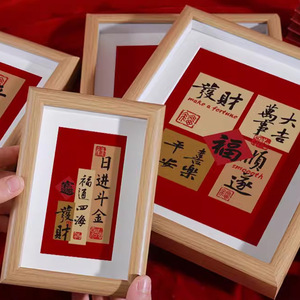 日进斗金
福運四海
發財
發財
make a fortune
萬事
大吉
福
順遂
smooth
平安
喜樂